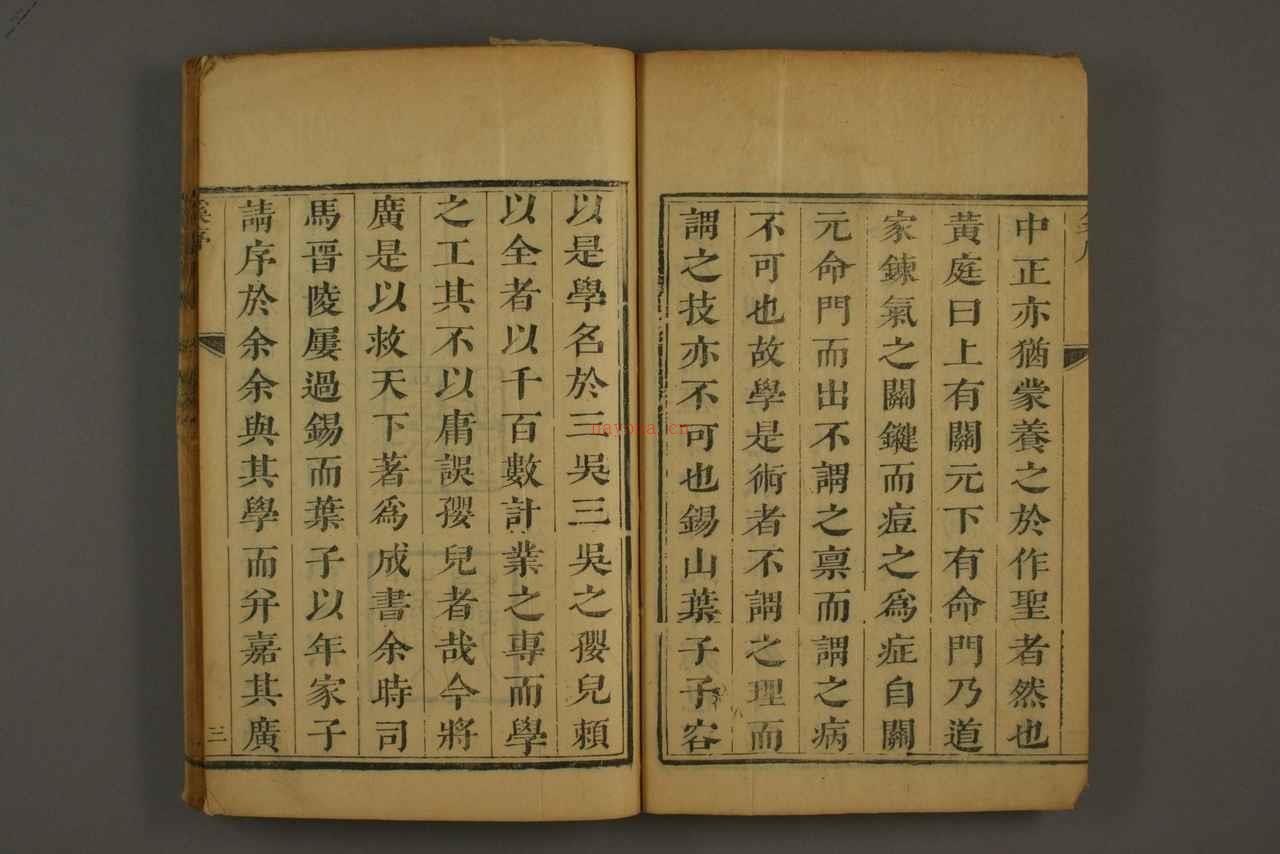 中正亦猶蒙養之於作聖者然也
黃庭曰上有關元下有命門乃道
家鍊氣之關鍵而痘之爲症自關
元命門而出不謂之禀而謂之病
不可也故學是術者不謂之理而
謂之技亦不可也錫山葉子子容
以是學名於三吳三吳之孾兒賴
以全者以千百數計業之專而學
之工其不以庸誤孾兒者哉今將
廣是以救天下著爲成書余時司
馬晉陵屢過錫而葉子以年家子
請序於余余與其學而弁嘉其廣
三
nayona.cn